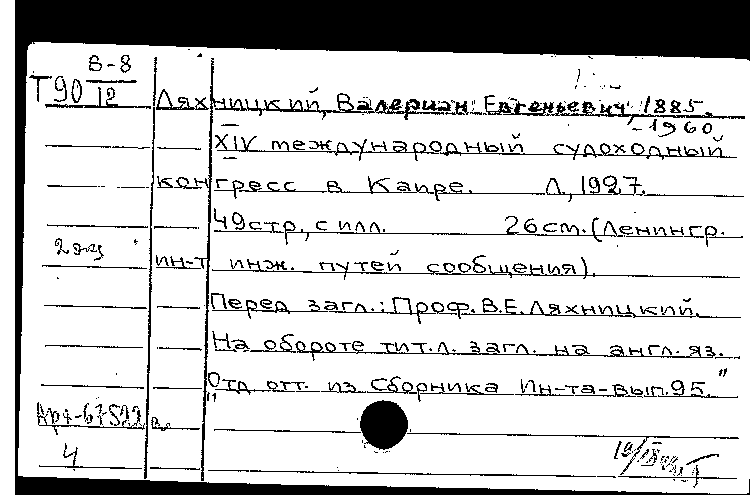 В-8
Т90 12
Ляхницкий, Валериан Евгеньевич, 1885.
-1960.
XIV международный судоходный
конгресс в Каире. Л, 1927.
49стр, с илл. 26см. (Ленингр.
2 экз
ин-т инж. путей сообщения).
Перед загл.: Проф. В.Е. Ляхницкий.
На обороте тит.л. загл. на англ. яз.
"Отд отт. из Сборника Ин-та-вып. 95."
4